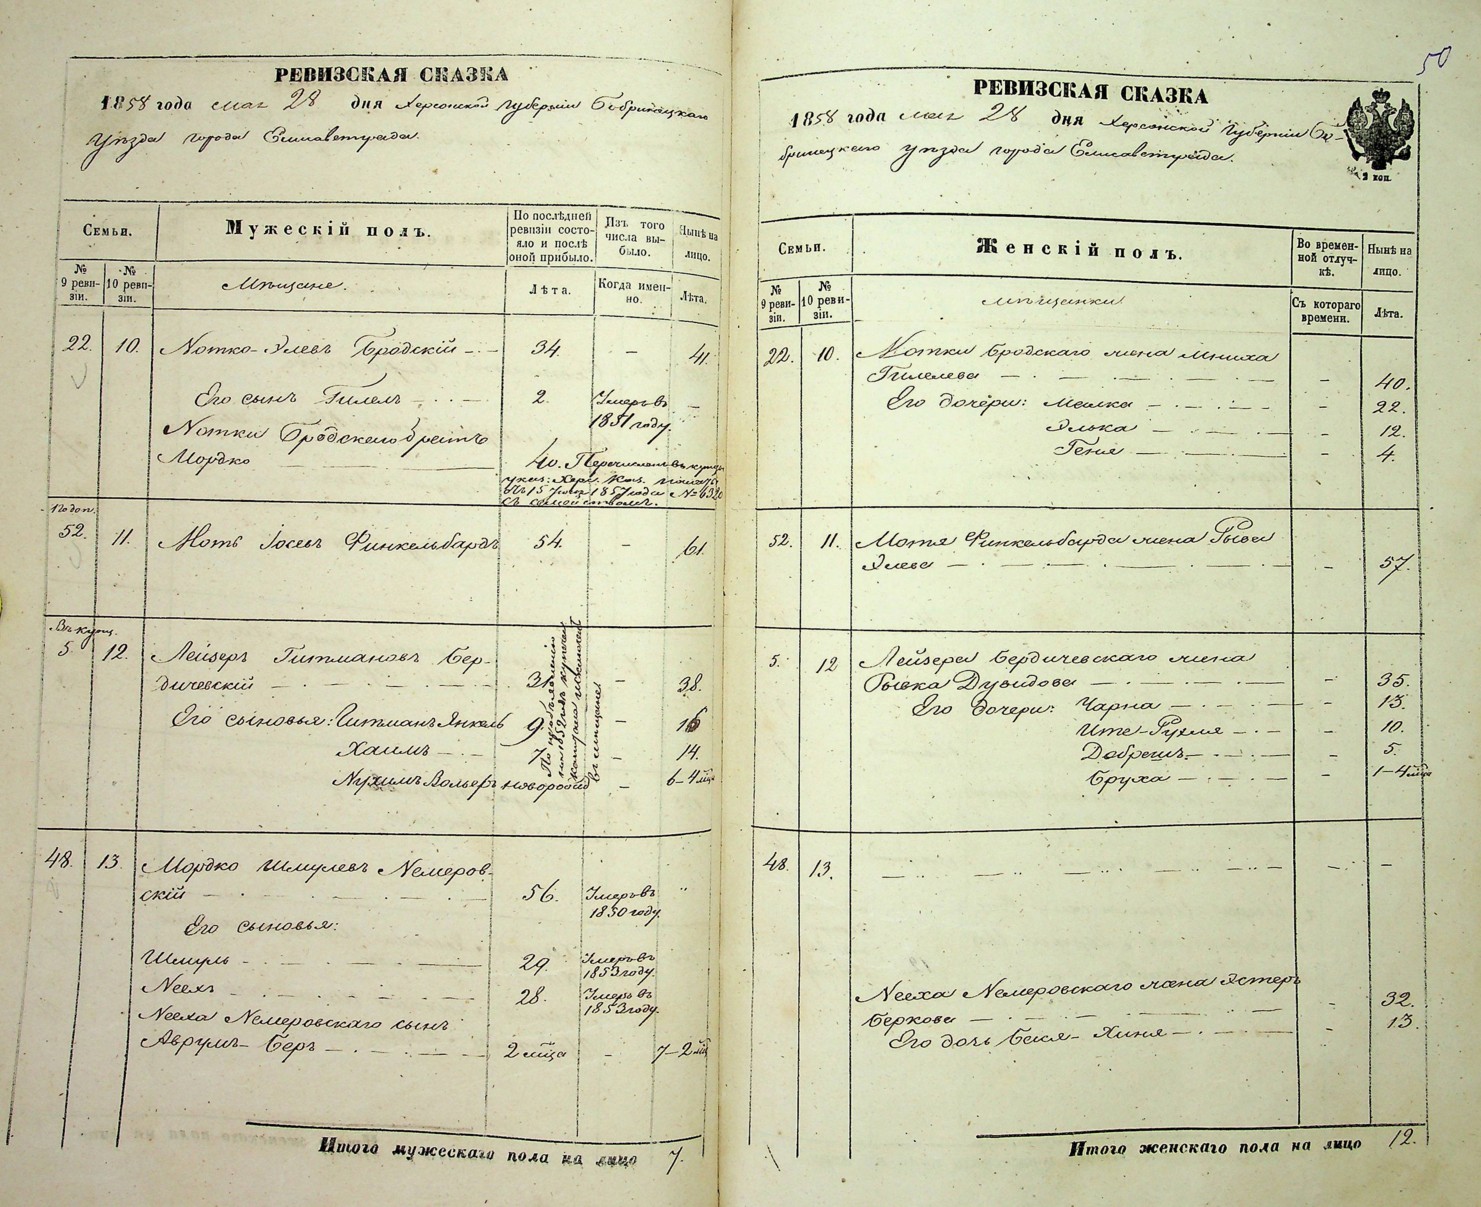 50
РЕВИЗСКАЯ СКАЗКА
1858 года мая 28 дня Херсонской Губерніи Бобринецкаго
уѣзда города Елисаветграда.
Семьи.
Мужескій полъ.
По послѣдней ревизіи состояло и послѣ оной прибыло.
Изъ того числа выбыло.
Нынѣ на лицо.
№ 9 ревизіи.
№ 10 ревизіи.
Мѣщане.
Лѣта.
Когда именно.
Лѣта.
22. 10. Нотко-Элевъ Бродскій 34. — 41.
Его сынъ Гилель 2. Умеръ въ 1851 году. —
Нотки Бродскаго братъ
Мордко 40. Перечисленъ въ купцы
указ: Херс. Каз. Палаты
15 1857 года №
съ семействомъ.
По доп.
52. 11. Моть Іосевъ Финкельбардъ 54. — 61.
Въ купц.
5. 12. Лейзеръ Гитмановъ Бер-
дичевскій 31. — 38.
Его сыновья: Гитманъ Янкель 9. — 16
Хаимъ 7. — 14.
Нухимъ Вольеръ новорожд — 6-4 мѣца
По необъявленію
на 1852 годъ купечес
капитала
въ мѣщане
48. 13. Мордко Шмулевъ Немеров-
скій 56. Умеръ въ 1850 году. "
Его сыновья:
Шмуль 29. Умеръ въ 1853 году.
Неехъ 28. Умеръ въ 1853 году.
Нееха Немеровскаго сынъ
Аврумъ-Беръ 2 мѣца — 7-2 мѣц
Итого мужескаго пола на лицо 7.
РЕВИЗСКАЯ СКАЗКА
1858 года мая 28 дня Херсонской Губерніи Бо-
бринецкаго уѣзда города Елисаветграда.
2 коп.
Семьи.
Женскій полъ.
Во временной отлучкѣ.
Нынѣ на лицо.
№ 9 ревизіи.
№ 10 ревизіи.
мѣщанки
Съ котораго времени.
Лѣта.
22. 10. Нотки Бродскаго жена Мниха
Гилелева — 40.
Его дочери: Малка — 22.
Элька — 12.
Геня — 4.
52. 11. Мотя Финкельбарда жена Рыва
Элева — 57.
5. 12 Лейзера Бердичевскаго жена
Рывка Дувидова — 35.
Его дочери: Чарна — 13.
Ите-Рухля — 10.
Добрешъ — 5.
Бруха — 1-4 мѣца
48. 13. — — — —
Нееха Немеровскаго жена Эстеръ
Беркова — 32.
Его дочь Бася-Хиня — 13.
Итого женскаго пола на лицо 12.